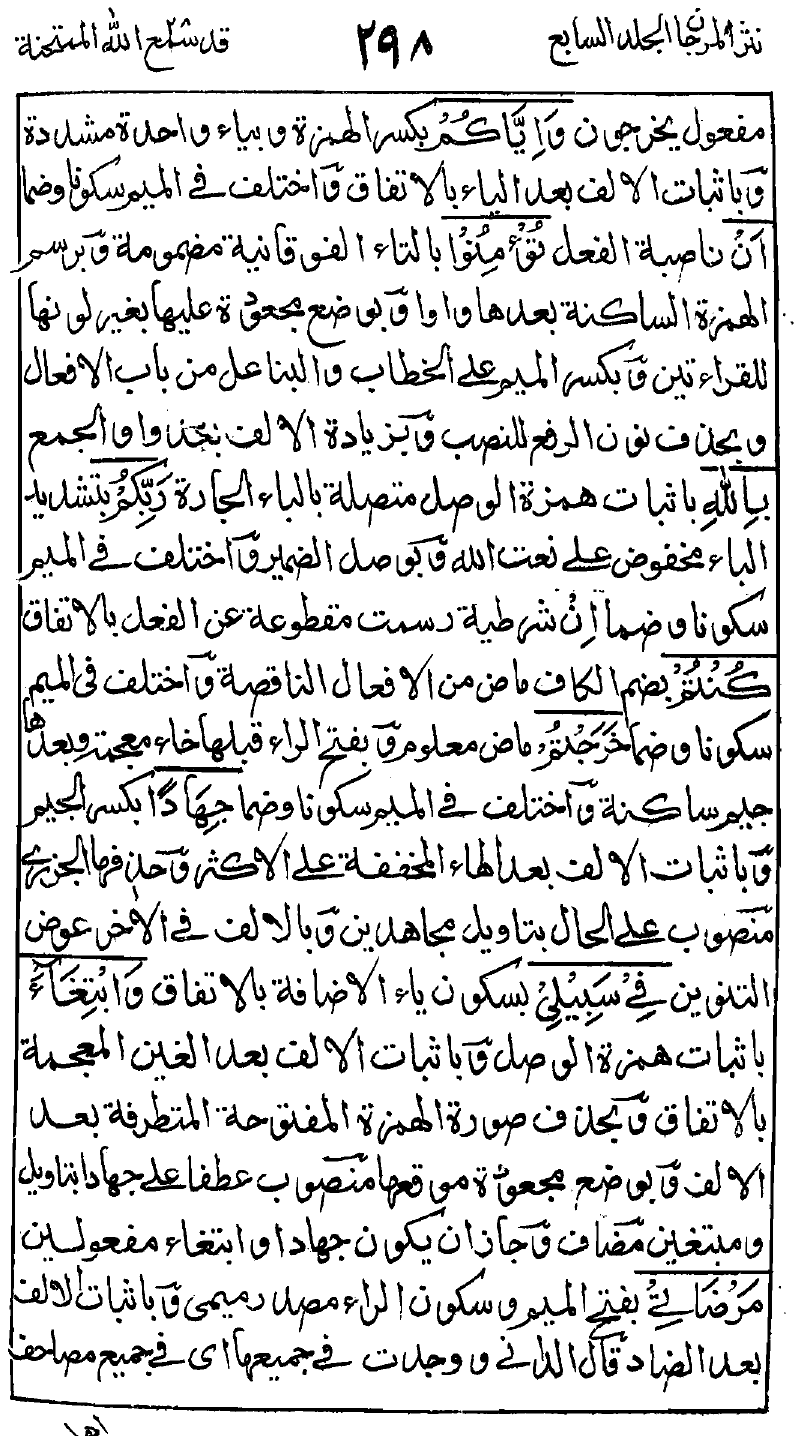 نثر المرجان الجلد السابع ٢٩٨ قد سمع الله الممتحنة
مفعول يخرجون وَاِيَّاكُمْ بكسر الهمزة وبياء واحدة مشددة
وَباثبات الالف بعد الياء بالاتفاق وَاختلف فى الميم سكونا وضما
اَنْ ناصبة الفعل تُؤْمِنُوْا بالتاء الفوقانية مضمومة وَبرسم
الهمزة الساكنة بعدها واوا وَبوضع مجعودة عليها بغير لونها
للقراءتين وَبكسر الميم على الخطاب والبناعل من باب الافعال
وبحذف نون الرفع للنصب وَبزيادة الالف بعد واو الجمع
بِاللّٰهِ باثبات همزة الوصل متصلة بالباء الجارة رَبِّكُمْ بتشديد
الباء مخفوض على نعت الله وَبوصل الضمير وَاختلف فى الميم
سكونا وضما اِنْ شرطية رسمت مقطوعة عن الفعل بالاتفاق
كُنْتُمْ بضم الكاف ماض من الافعال الناقصة وَاختلف فى الميم
سكونا وضما خَرَجْتُمْ ماض معلوم وَبفتح الراء قبلها خاء معجمة وبعدها
جيم ساكنة وَاختلف فى الميم سكونا وضما جِهَادًا بكسر الجيم
وَباثبات الالف بعد الهاء المخففة على الاكثر وَحذفها الجزرى
منصوب على الحال بتاويل مجاهدين وَبالالف فى الآخر عوض
التنوين فِىْ سَبِيْلِىْ بسكون ياء الاضافة بالاتفاق وَابْتِغَآءَ
باثبات همزة الوصل وَباثبات الالف بعد الغين المعجمة
بالاتفاق وَبحذف صورة الهمزة المفتوحة المتطرفة بعد
الالف وَبوضع مجعودة موقعها منصوب عطفا على جهادا بتاويل
ومبتغين مضاف وَجاز ان يكون جهادا وابتغاء مفعولين
مَرْضَاتِىْ بفتح الميم وسكون الراء مصدر ميمى وَباثبات الالف
بعد الضاد قال الدانى ووجدت فى جميعها اى فى جميع مصاحف